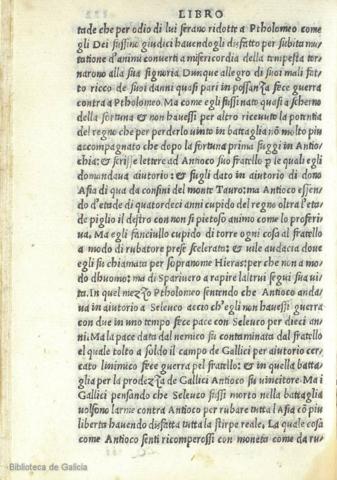 LIBRO
tade che per odio di lui serano ridotte a Ptholomeo come
gli Dei fussino giudici havendogli disfatto per subita mu
tatione d'animi converti a misericordia della tempesta tor
narono alla sua signoria. Dunque allegro di suoi mali fat
to ricco de suoi danni quasi pari in possanza fece guerra
contra a Ptholomeo. Ma come egli fussi nato quasi a scherno
della fortuna & non havessi per altro ricevuto la potentia
del regno che per perderlo vinto in battaglia: nō molto piu
accompagnato che dopo la fortuna prima fuggi in Antio-
chia: & scrisse lettere ad Antioco suo fratello ꝑ le quali egli
domandava aiutorio: & fugli dato in aiutorio di dono
Asia di qua da confini del monte Tauro: ma Antioco essen
do d'etade di quatordeci anni cupido del regno oltra l'eta
de piglio il destro con non si pietoso animo come lo proferi
va. Ma egli fanciullo cupido di torre ogni cosa al fratello
a modo di rubatore prese scelerata: & vile audacia dove
egli fu chiamato per sopranome Hieras: per che non a mo
do dhuomo: ma di Sparviero a rapire laltrui segui sua vi
ta. In quel mezzo Ptholomeo sentendo che Antioco anda
va in aiutorio a Seleuco accio ch'egli non havessi guerra
con due in uno tempo fece pace con Seleuco per dieci an
ni. Ma la pace data dal nemico fu contaminata dal fratello
el quale tolto a soldo il campo de Gallici per aiutorio cer
cato linimico fece guerra pel fratello: & in quella batta
glia per la prodezza de Gallici Antioco fu vincitore. Ma i
Gallici pensando che Seleuco fussi morto nella battaglia
volsono larme contra Antioco per rubare tutta l'Asia cō piu
liberta havendo disfatta tutta la stirpe reale. La quale cosa
come Antioco senti ricomperossi con moneta come da ru-
Biblioteca de Galicia